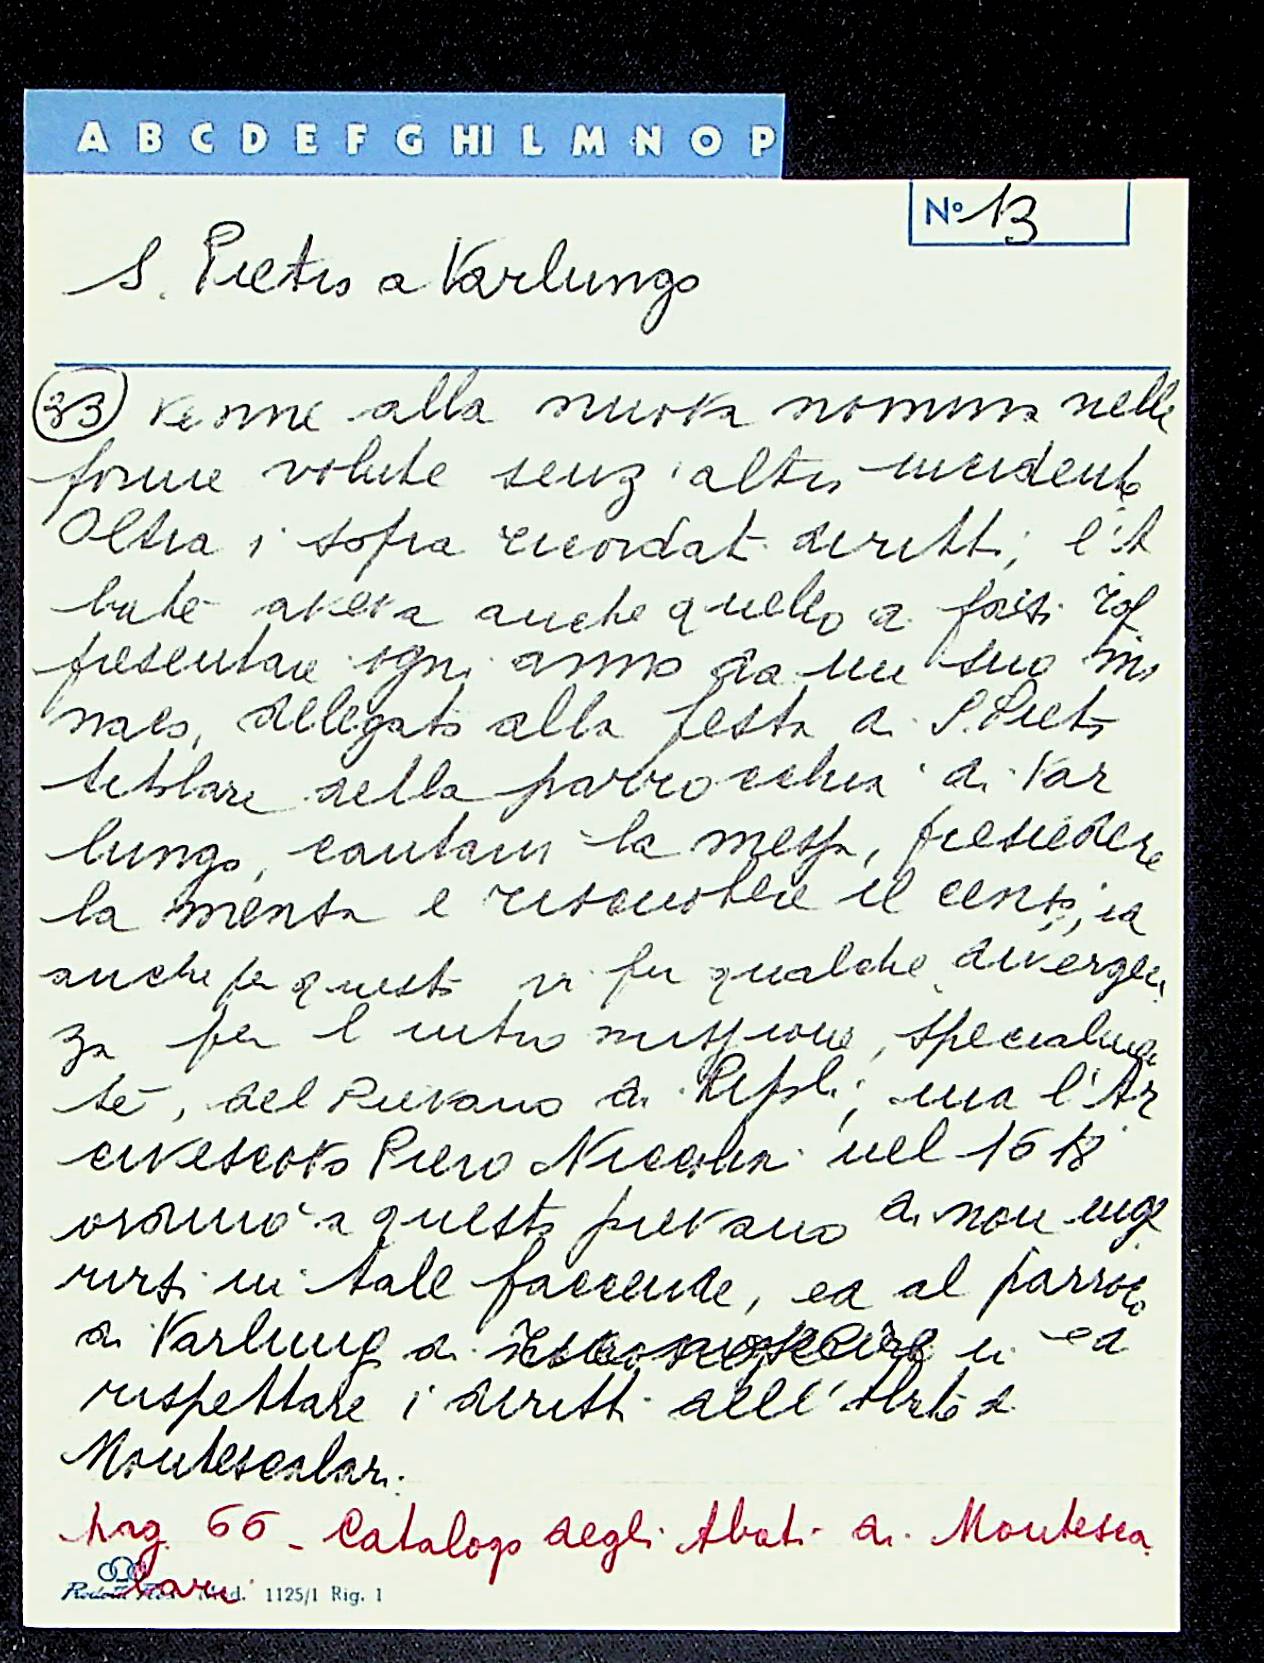 A B C D E F G HI L M N O P
Nº 13
S. Pietro a Varlungo
33 venne alla nuova nomina nelle
forme volute senz'altro incidente
Oltra i sopra ricordati diritti, l'A
bate aveva anche quello di farsi rap
presentare ogni anno da un suo mo
naco, delegato alla festa di S. Pietro
titolare della parrocchia di Var
lungo, cantarvi la messa, presiedere
la mensa e riscuotere il censo, ed
anche per questo vi fu qualche divergen
za per l'intromissione, specialmen
te, del Pievano di Ripoli, ma l'Ar
civescovo Piero Niccolini nel 1618
ordinò a questo pievano di non inge
rirsi in tale faccende, ed al parroco
di Varlungo di ed
rispettare i diritti dell'Abate di
Montescalari.
pag. 66 - Catalogo degli Abati di Montesca
lari
Mod. 1125/1 Rig. 1